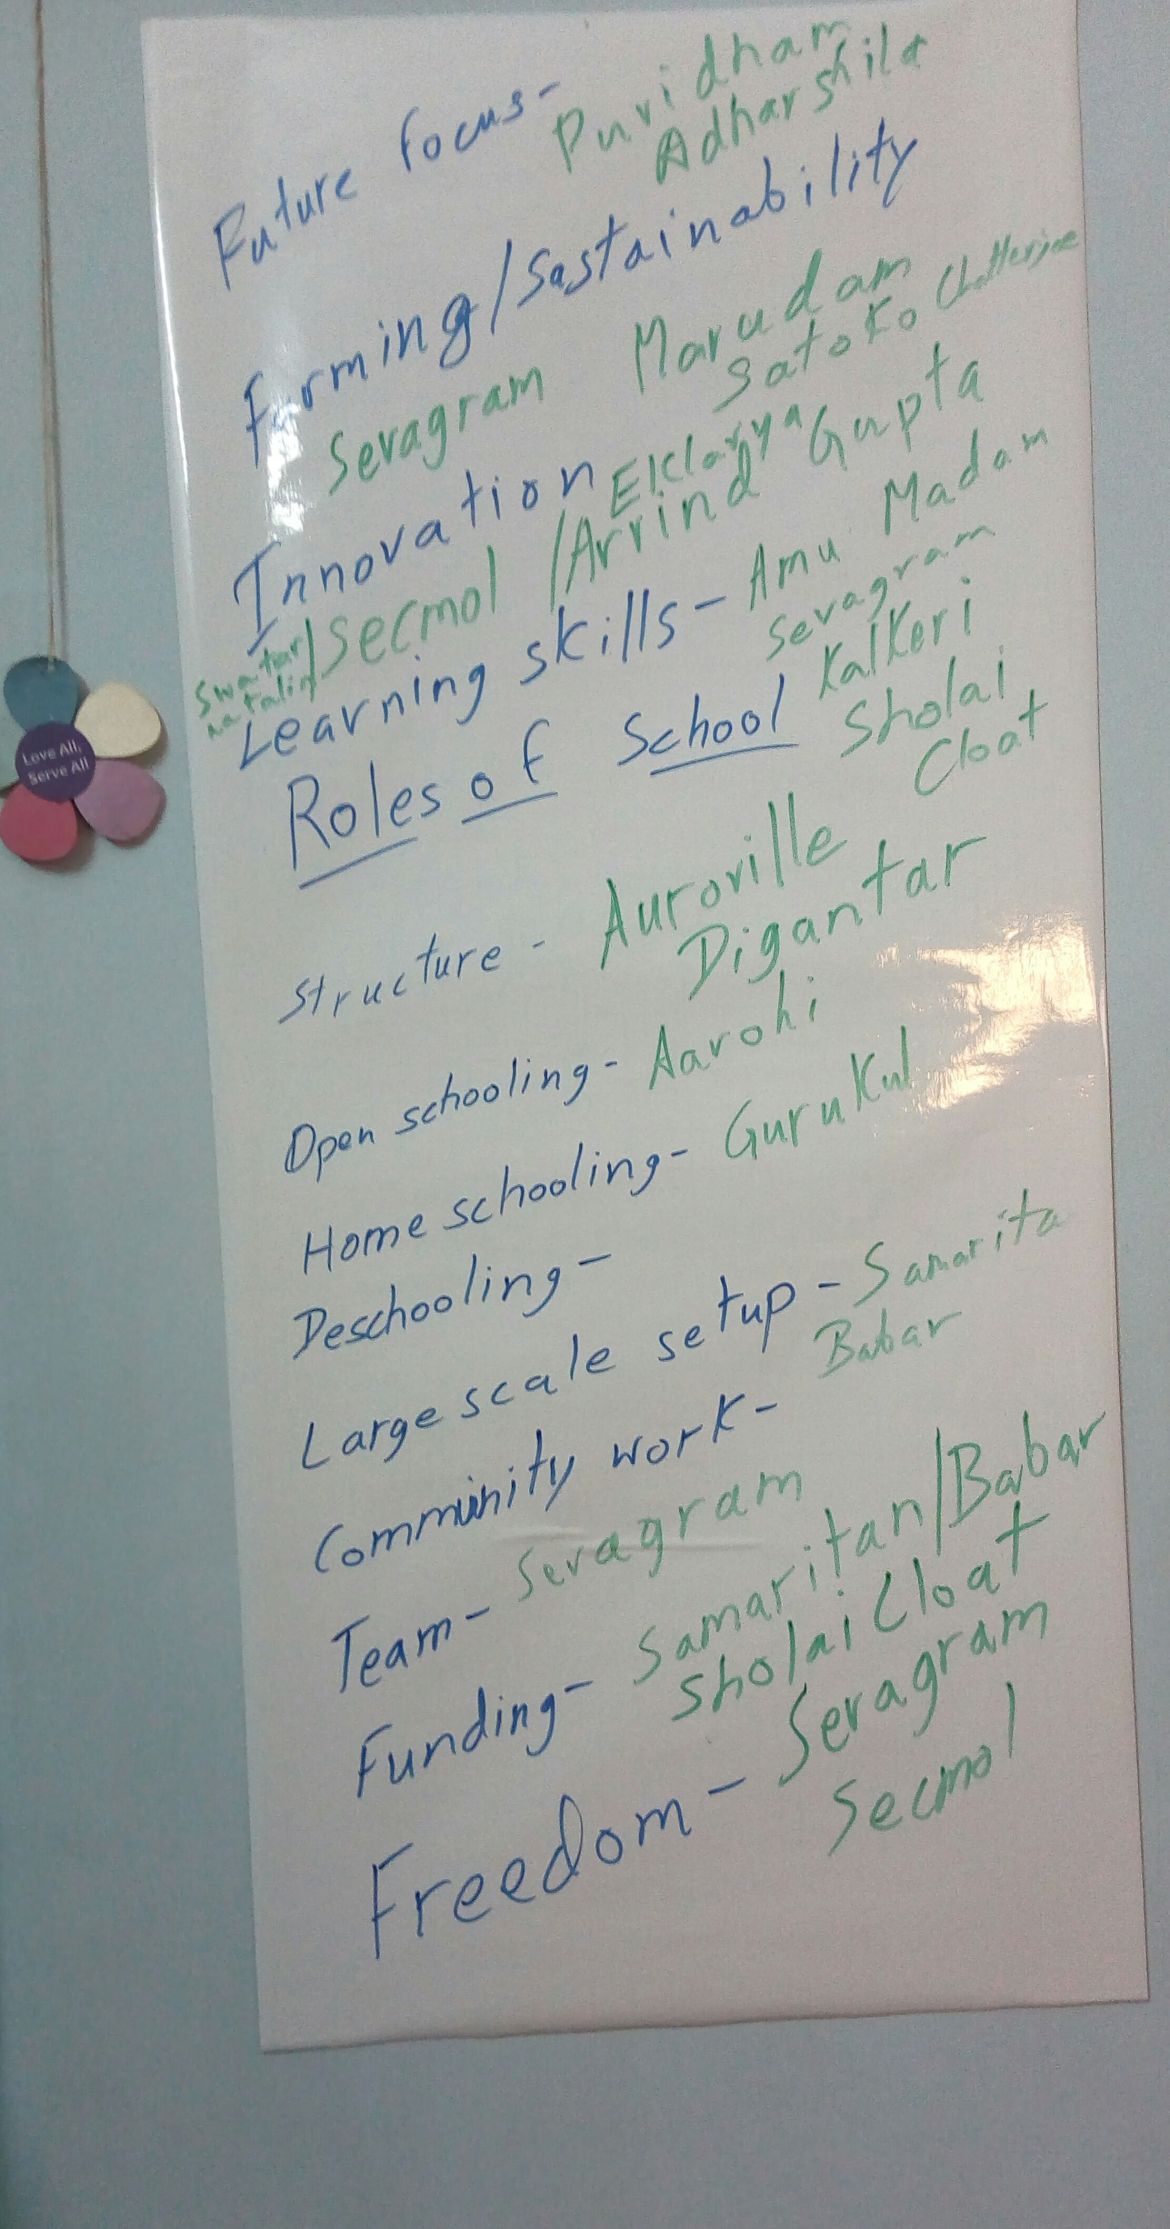 Future focus- Puvidham
Adharshila
Farming/Sastainability
Sevagram Marudam
Satoko Chatterjee
Innovation Eklavya
Secmol /Arvind Gupta
Learning skills- Amu Madam
Sevagram
Kalkeri
Roles of School Sholai
Cloat
Structure - Auroville
Digantar
Open schooling- Aarohi
Home schooling- Gurukul
Deschooling-
Large scale setup- Samarita
Babar
Community work-
Team- Sevagram
Funding- Samaritan/Babar
Sholai Cloat
Freedom- Sevagram
Secmol
Love All,
Serve All